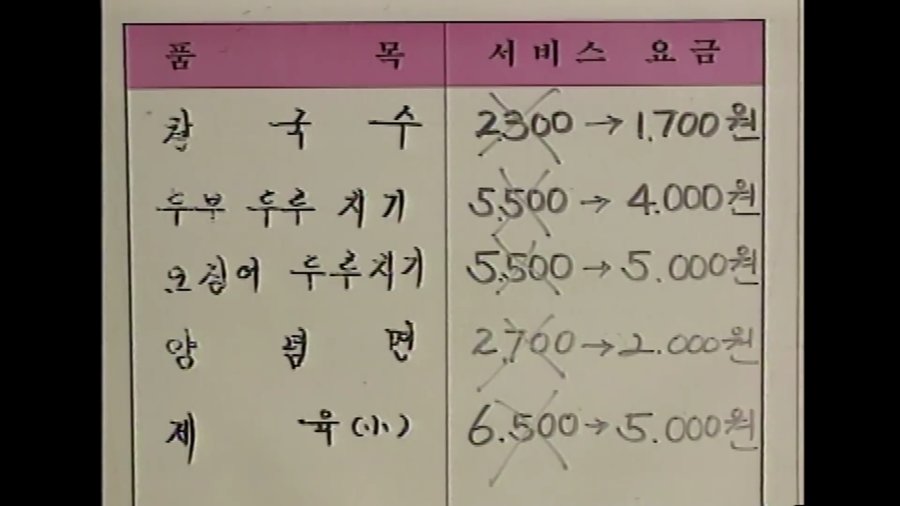 품 목 서비스 요금
칼 국 수 2,300 → 1,700원
두부 두루 치기 5,500 → 4.000원
오징어 두루치기 5,500 → 5.000원
양 념 면 2,700 → 2.000원
제 육(小) 6.500 → 5.000원